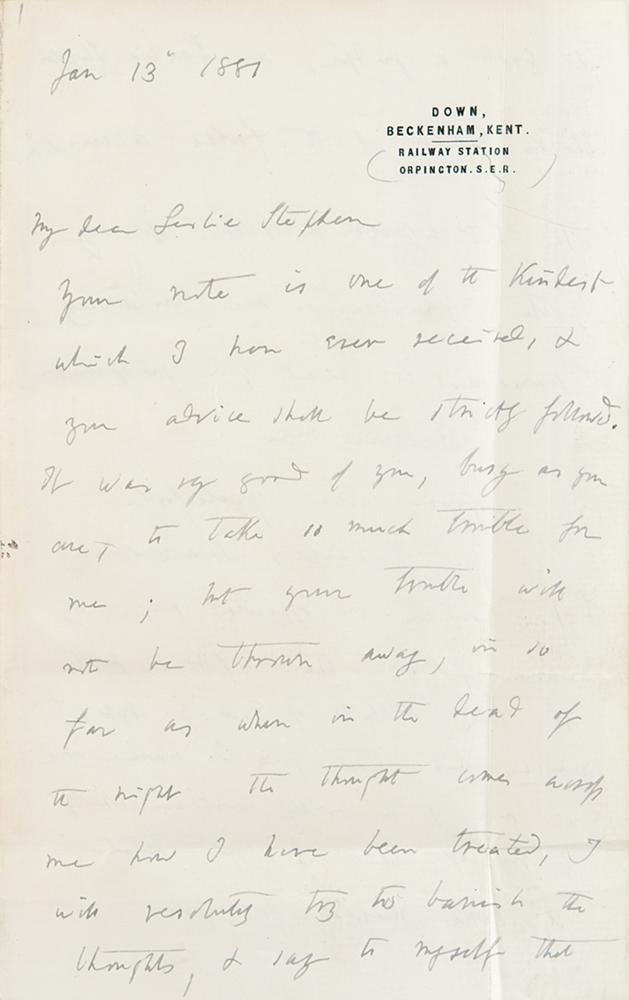 Jan 13th 1881
DOWN,
BECKENHAM, KENT.
RAILWAY STATION
ORPINGTON. S.E.R.
My dear Leslie Stephen
Your note is one of the kindest
which I have ever received, &
your advice shall be strictly followed.
It was very good of you, busy as you
are, to take so much trouble for
me; but your trouble will
not be thrown away, in so
far as when in the dead of
the night the thought comes across
me how I have been treated, I
will resolutely try to banish the
thoughts, & say to myself that